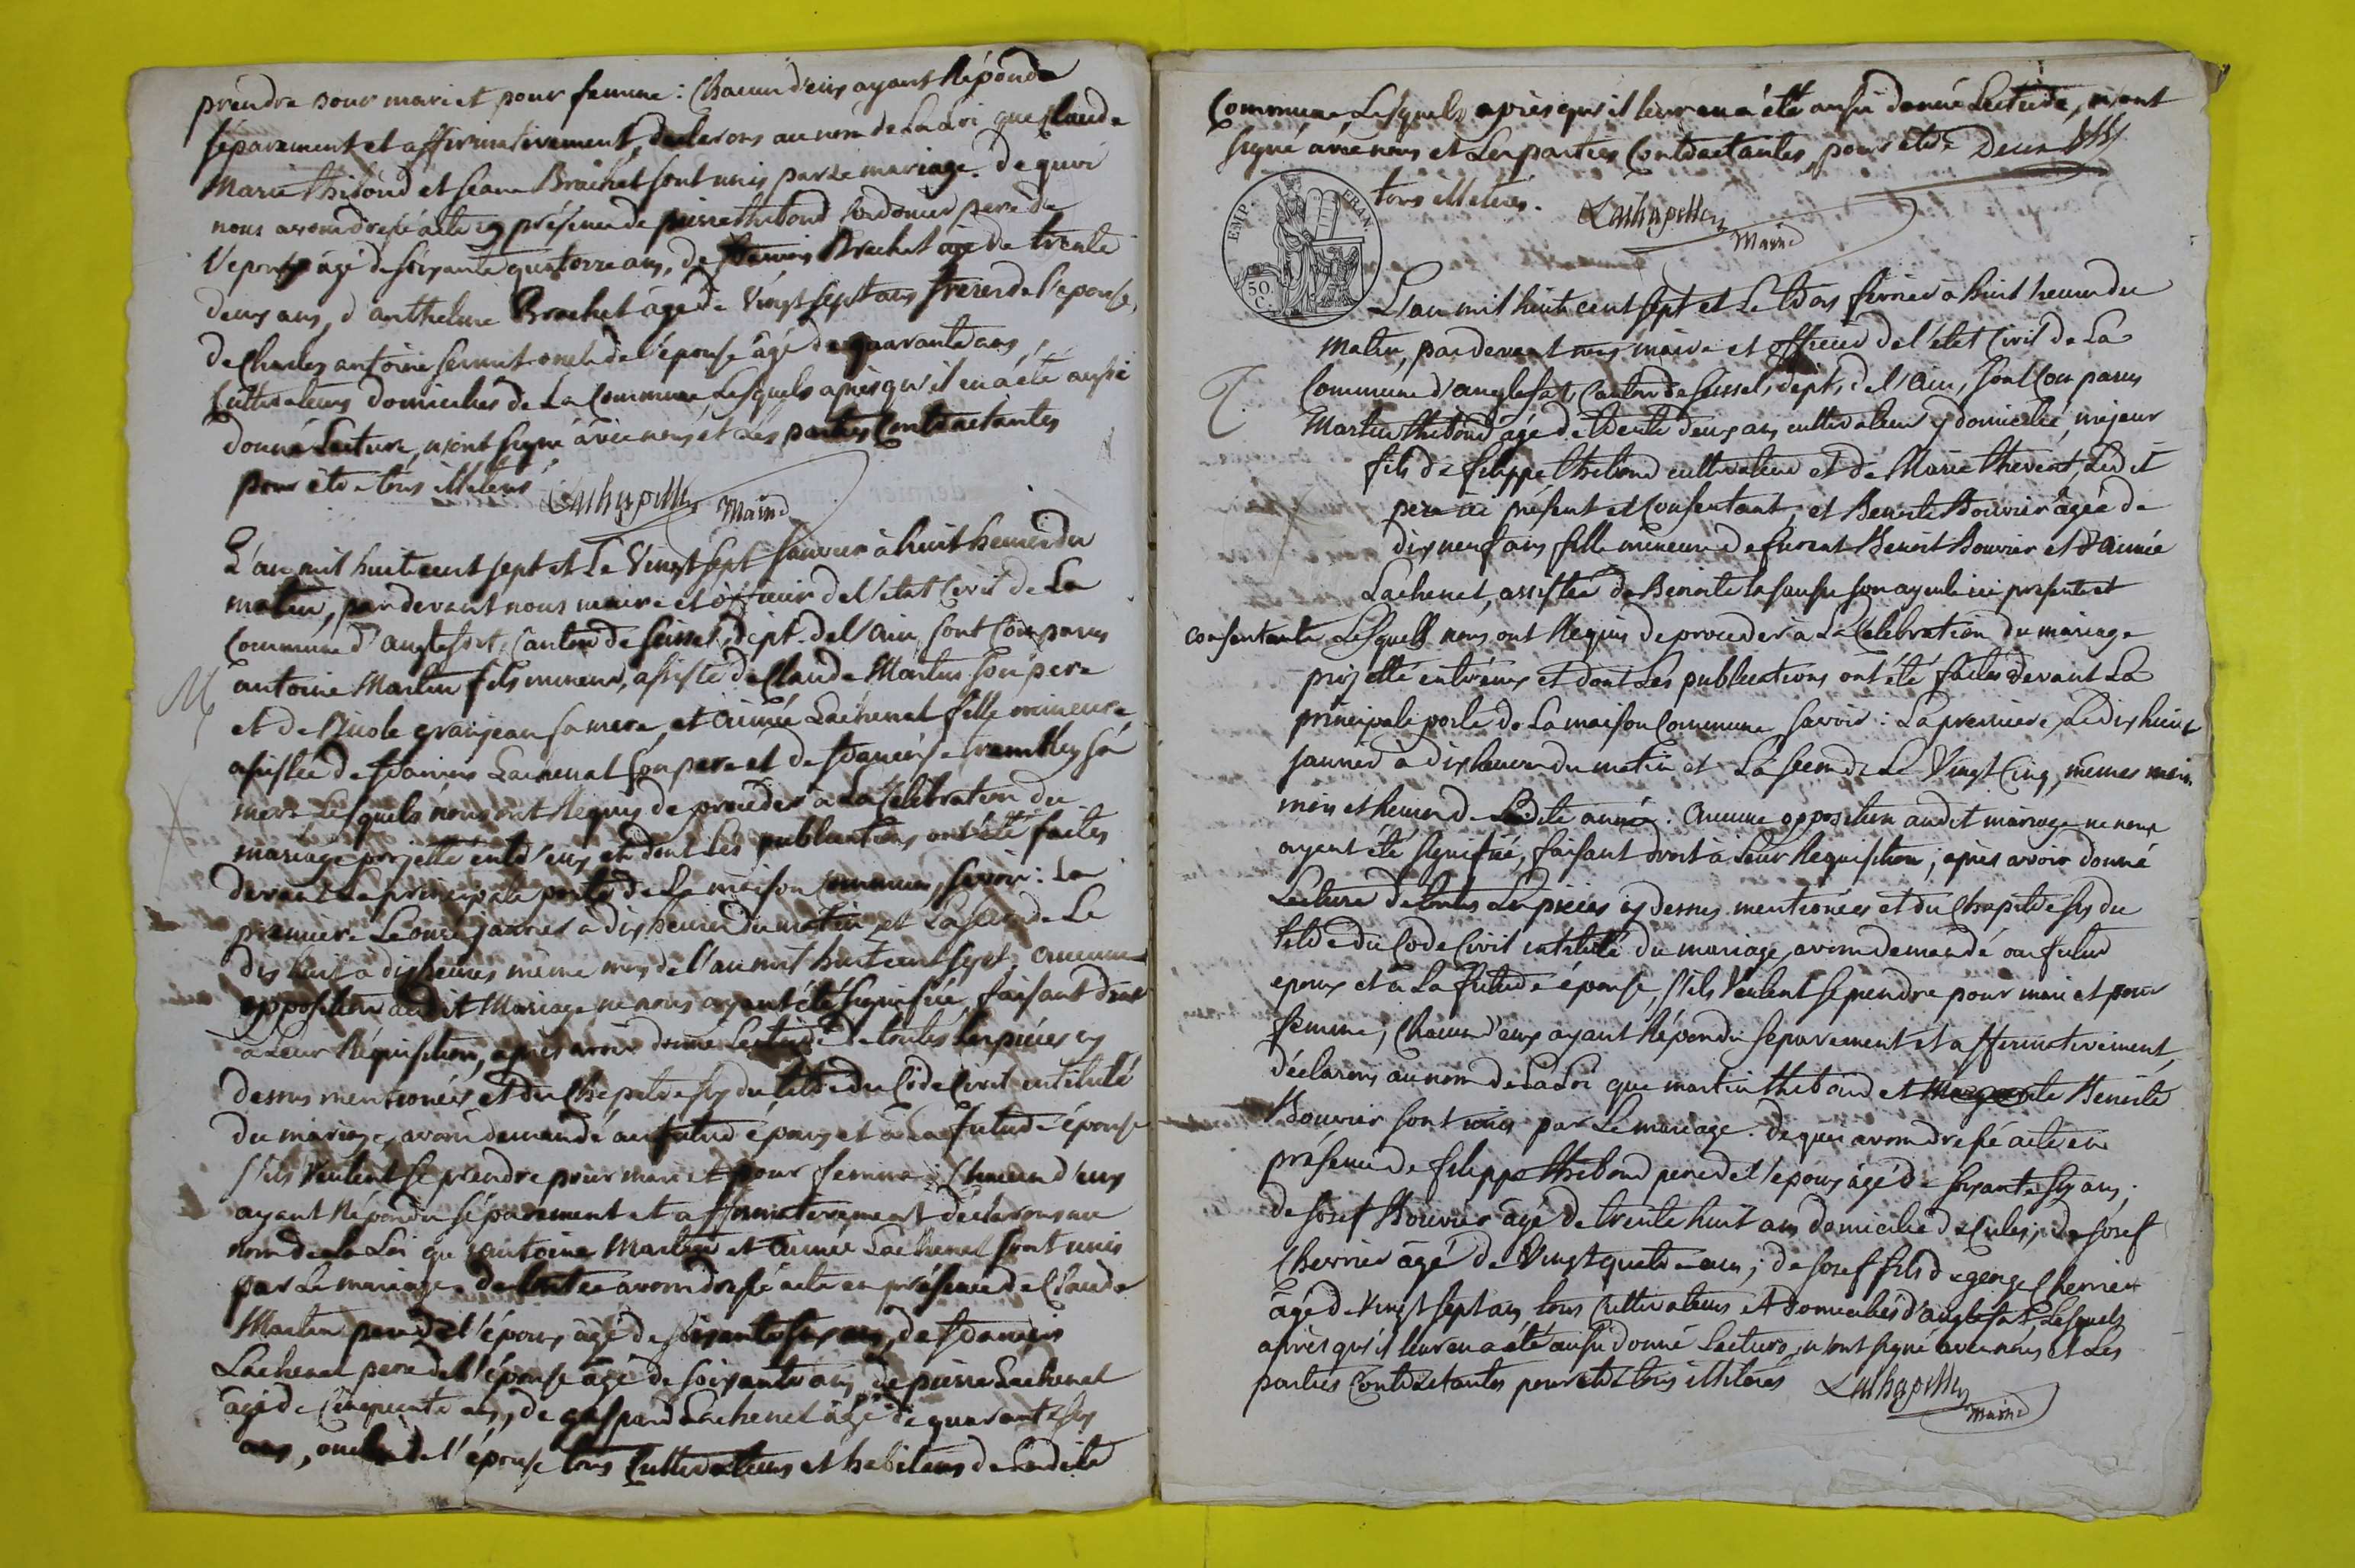 prendre pour mari et pour femme : Chacun d'eux ayant Répondu
séparement et affirmativement, declarons au nom de La Loi que Claude
Marie thiboud et Jeane Brachet sont unis par Le mariage. de quoi
nous avons dressé acte en présence de pierre thiboud Cordonier pere de
l'epoux âgé de soixante quatorze ans, de francois Brachet âgé de trente
deux ans, d'anthelme Brachet âgé de Vingt sept ans freres de l'epouse,
de Charles antoine oncle de l'épouse âgé de quarante ans,
Cultivateurs domiciliés de La Commune Lesquels après qu'il en a été aussi
donné Lecture, n'ont signé avec nous et Les parties Contractantes
pour être tous illiterés Lachapelle Maire
L'an mil huit cent sept et Le Vingt sept Janvier à huit heures du
matin, pardevant nous maire et officier de l'etat Civil de La
Commune d'anglefort, Canton de seissel, dept. de l'Ain, sont Comparus
antoine Martin fils mineur, assisté de Claude Martin son pere
et de Nicole granjean sa mere, et Aimée Lachenal fille mineure
M
assistée de francois Lachenal son pere et de francoise trembley sa
mere Lesquels nous ont Requis de proceder à La Célébration du
mariage projetté entr'eux et dont Les publications ont été faites
devant La principale porte de La maison Commune, savoir : La
premiere Le onze janvier à dix heures du matin et La seconde Le
dix huit à dix heures même mois de l'an mil huit cent sept ; aucune
opposition audit Mariage ne nous ayant été signifiée, faisant droit
à Leur Réquisition, après avoir donné Lecture de toutes Les pièces cy
dessus mentionées et du Chapitre six du titre du Code Civil intitulé
du mariage, avons demandé au futur époux et à La future épouse
s'ils veulent se prendre pour mari et pour femme ; Chacun d'eux
ayant Répondu séparement et affirmativement déclarons au
nom de La Loi que antoine Martin et Aimée Lachenal sont unis
par Le mariage de tout ce avons dressé acte en présence de Claude
Martin pere de l'époux âgé de soixante six ans, de francois
Lachenal pere de l'épouse âgé de soixante ans, de pierre Lachenal
âgé de Cinquante ans, de gaspard Lachenal âgé de quarante six
ans, oncles de l'épouse tous Cultivateurs et habitans de Ladite
Commune, Lesquels après qu'il leur en a été aussi donné Lecture, n'ont
signé avec nous et Les parties Contractantes, pour etre
tous illiterés. Lachapelle Maire
EMP. FRAN.
50 C.
L'an mil huit cent sept et Le trois fevrier à huit heures du
matin, pardevant nous maire et officier de l'état Civil de La
Commune d'anglefort, Canton de seissel, dept. de l'Ain, sont Comparus
T.
Martin thiboud âgé de trente deux ans cultivateur y domicilié, majeur
fils de filippe thiboud cultivateur et de Marie thevent, Ledit
pere ici présent et Consentant ; et Benoite Bouvier âgée de
dix neuf ans, fille mineure de furent Benoit Bouvier et d'Aimée
Lachenet, assistée de Benoite son ayeule ici présente et
consentante Lesquels nous ont Requis de proceder à La Célébration du mariage
projetté entr'eux et dont Les publications ont été faites devant La
principale porte de La maison Commune savoir : La premiere, Le dix huit
janvier à dix heures du matin et La seconde Le Vingt Cinq, mêmes
mois et heures de Ladite année : Aucune opposition audit mariage ne nous
ayant été signifiée, faisant droit à Leur Requisition ; après avoir donné
Lecture de toutes Les pièces cy dessus mentionées et du Chapitre six du
titre du Code Civil intitulé du mariage, avons demandé au futur
epoux et à La future épouse, s'ils veulent se prendre pour mari et pour
femme ; Chacun d'eux ayant Répondu séparement et affirmativement,
déclarons au nom de La Loi que martin thiboud et Benoite
Bouvier sont unis par Le mariage. de quoi avons dressé acte en
présence de filippe thiboud pere de l'époux âgé de soixante six ans ;
de Josef Bouvier âgé de trente huit ans domicilié de Culoz ; de Josef
Cherrier âgé de Vingt quatre ans ; de Josef fils de george Cherrier
âgé de Vingt sept ans tous Cultivateurs et domiciliés d'anglefort, Lesquels
après qu'il leur en a été aussi donné Lecture, n'ont signé avec nous et Les
parties Contractantes pour etre tous illiterés Lachapelle
Maire